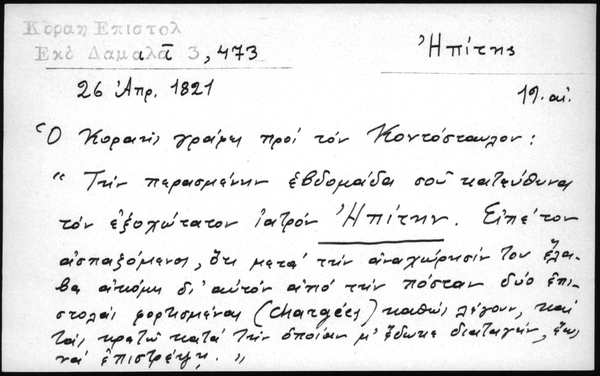 Κοραη Επιστολ
Εκδ Δαμαλᾶ 3, 473
Ἠπίτης
26 Ἀπρ. 1821
19. αἰ.
Ὁ Κοραῆς γράφει πρὸς τὸν Κοντόσταυλον:
"Τὴν περασμένην ἑβδομάδα σοῦ κατεύθυνα
τὸν ἐξοχώτατον ἰατρὸν Ἠπίτην. Εἰπέ τον
ἀσπαζόμενος, ὅτι μετὰ τὴν ἀναχώρησίν του ἔλα-
βα ἀκόμη δι' αὐτὸν ἀπὸ τὴν πόσταν δύο ἐπι-
στολὰς φορτισμένας (chargées) καθὼς λέγουν, καὶ
τὰς κρατῶ κατὰ τὴν ὁποίαν μ' ἔδωκε διαταγήν, ἕως
νὰ ἐπιστρέψῃ."